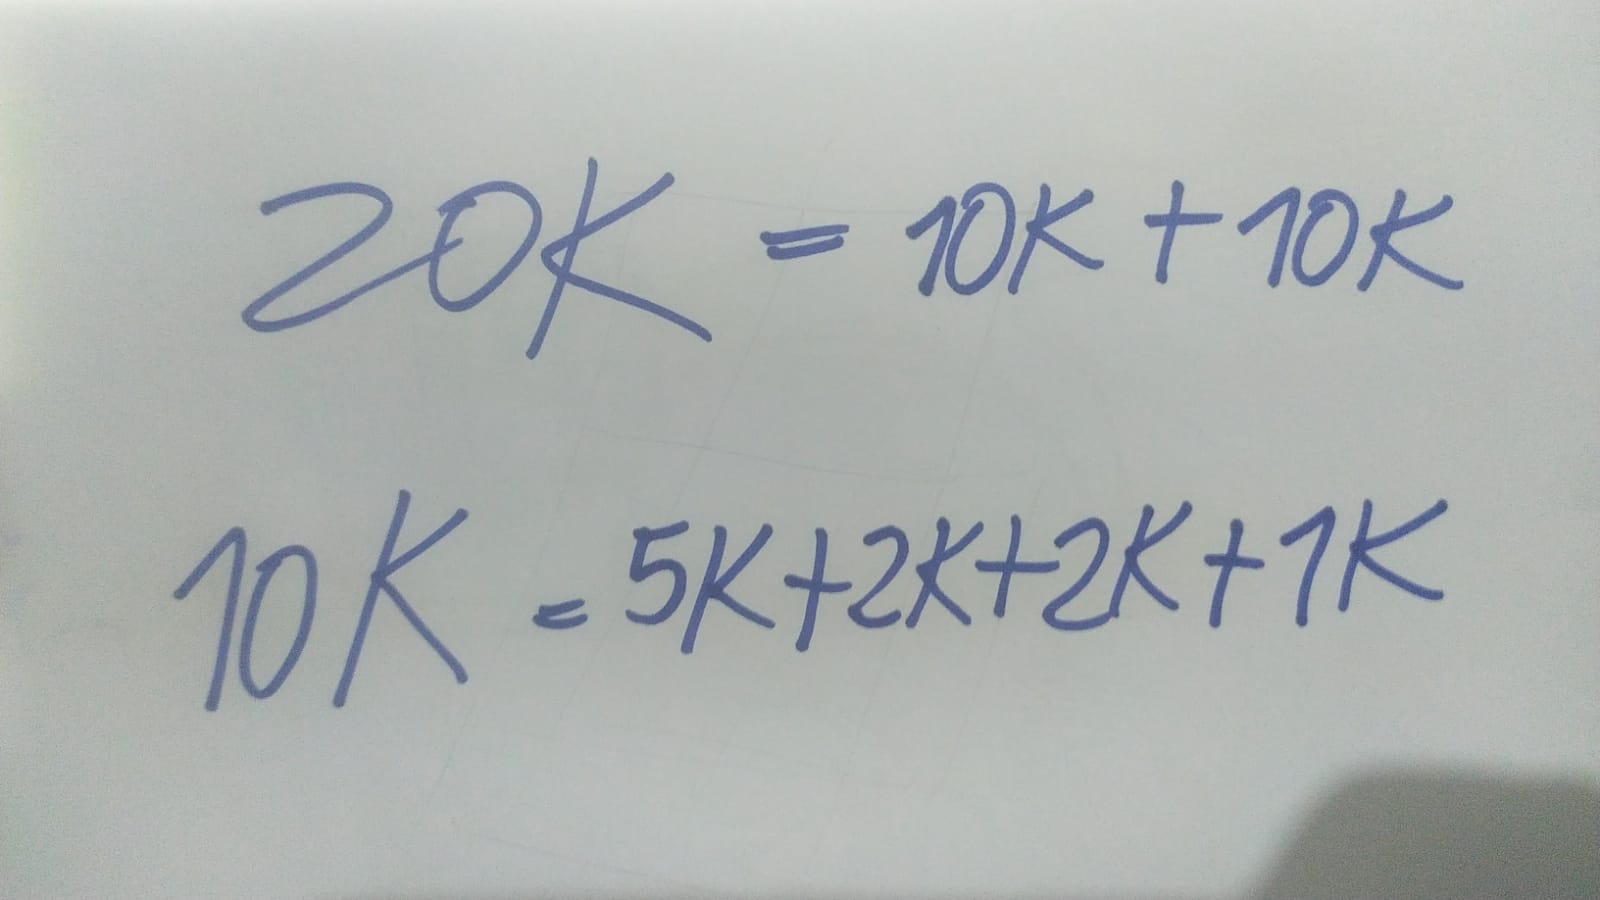 20K = 10K + 10K
10K = 5K+2K+2K+1K